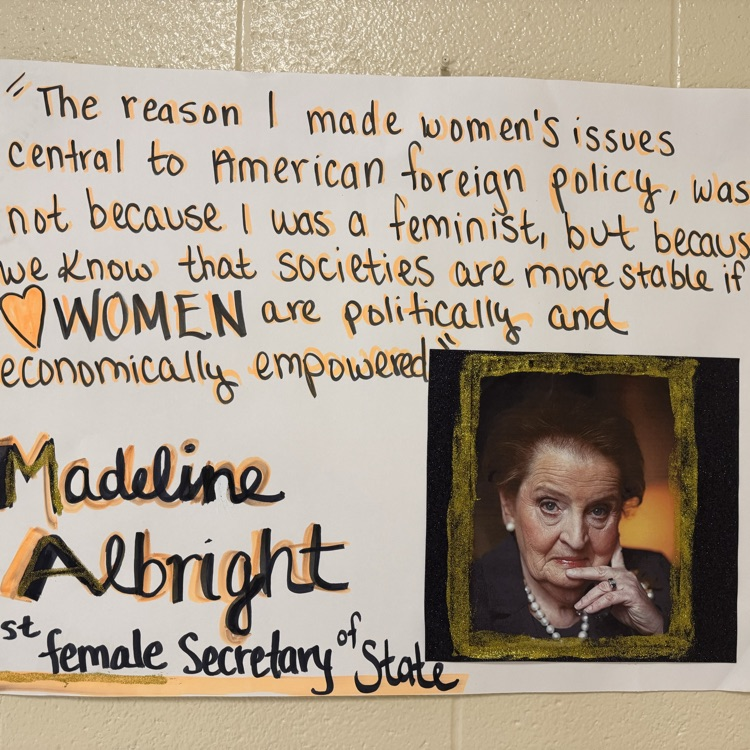 "The reason I made women's issues
central to American foreign policy, was
not because I was a feminist, but becaus
we know that societies are more stable if
WOMEN are politically and
economically empowered"
Madeline
Albright
st female Secretary of State